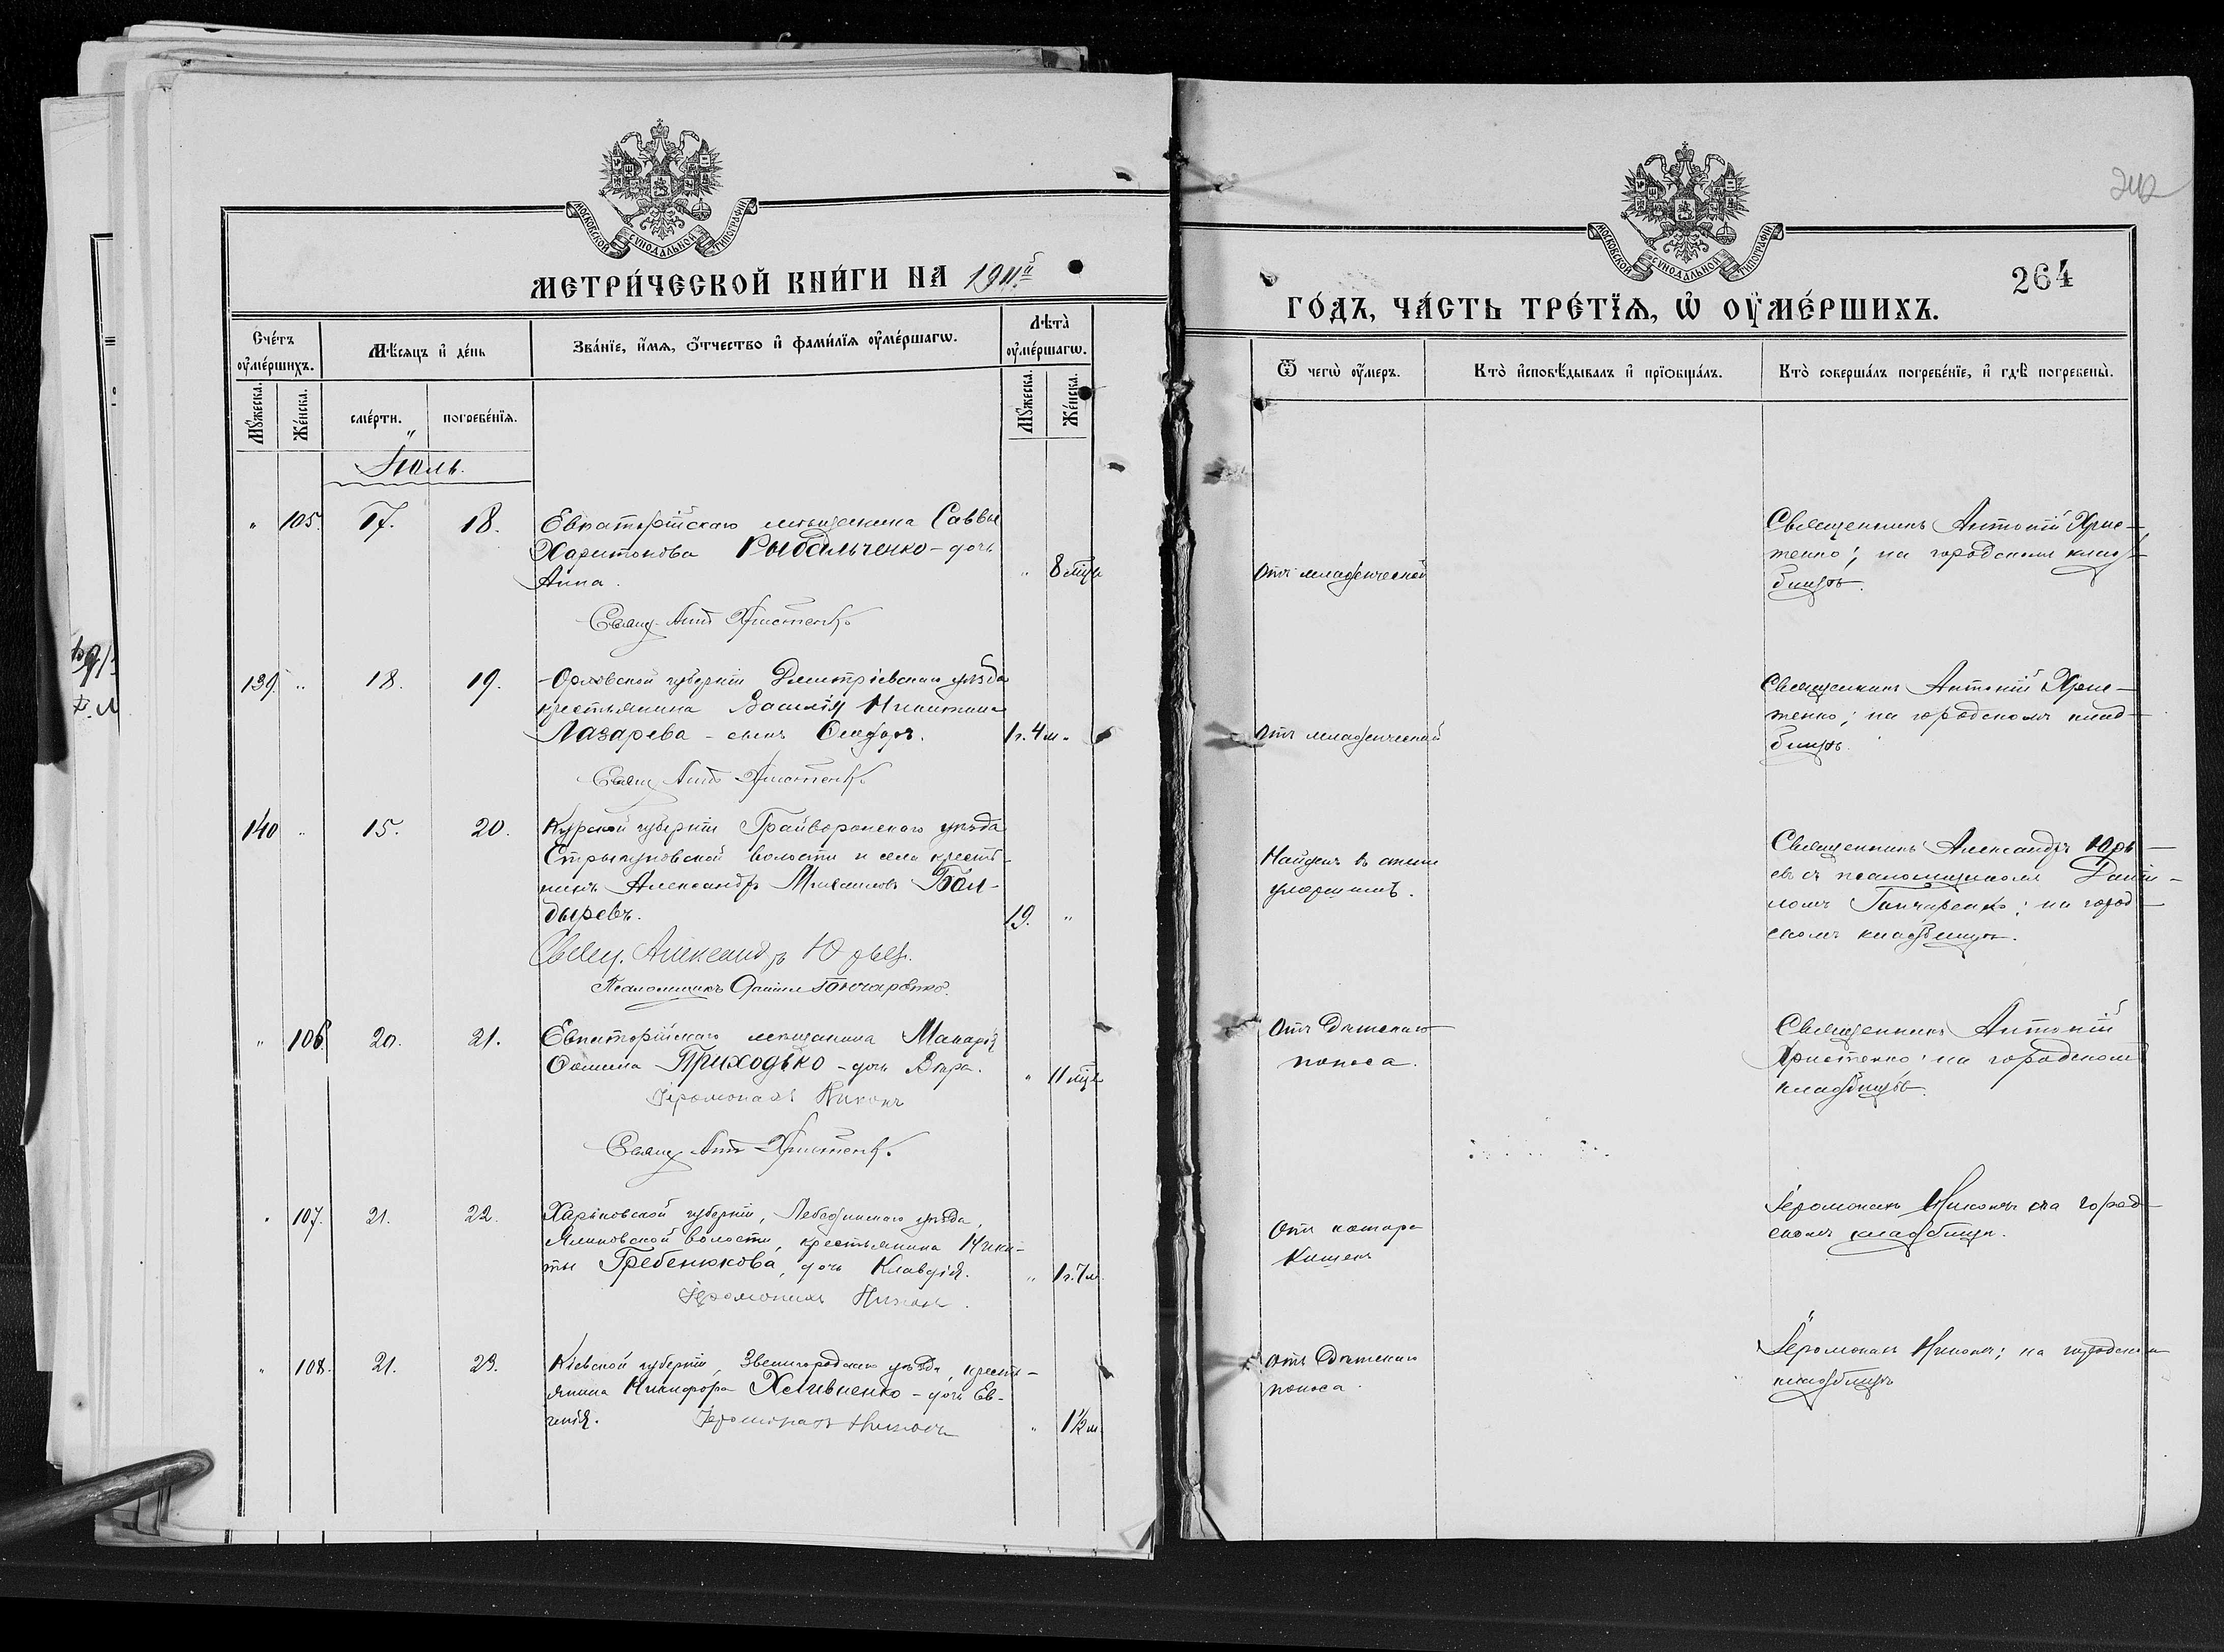 МОСКОВСКОЙ СѴНОДАЛЬНОЙ ТИПОГРАФІИ
МЕТРИ́ЧЕСКОЙ КНИ́ГИ НА 1911й
Сче́тъ ᲂу҆ме́ршихъ.
Мѣ́сяцъ и҆ де́нь
Зва́нїе, и҆́мѧ, ѻ҆́тчество и҆ фами́лїѧ ᲂу҆ме́ршагѡ.
Лѣта̀ ᲂу҆ме́ршагѡ.
Мꙋ́жеска.
Же́нска.
сме́рти.
погребе́нїѧ.
Мꙋ́жеска.
Же́нска.
Іюль.
" 105. 17. 18. Евпаторійскаго мѣщанина Саввы
Харитонова Рыбальченко – дочь
Анна. " 8 мѣс.
Свящ. Ант. Христенко
139. " 18. 19. Орловской губерніи Дмитріевскаго уѣзда
крестьянина Василія Никитина
Лазарева – сынъ Ѳедоръ. 1 г. 4 м. "
Свящ. Ант. Христенко
140 " 15. 20. Курской губерніи Грайворонскаго уѣзда
волости и села кресть-
нинъ Александръ Михаиловъ Бол-
дыревъ. 19. "
Свящ. Александръ Юрьевъ.
Псаломщикъ Даніилъ Гончаренко.
" 106. 20. 21. Евпаторійскаго мѣщанина Макарія
Ѳомина Приходько – дочь Вѣра. " 11 мѣс.
Іеромонахъ Никонъ
Свящ. Ант. Христенко
" 107. 21. 22. Харьковской губерніи, Лебединскаго уѣзда,
волости, крестьянина Ники-
ты Гребенюкова, дочь Клавдія. " 1 г. 7 м.
Іеромонахъ Никонъ.
" 108. 21. 23. Кіевской губерніи, Звенигородскаго уѣзда, кресть-
янина Никифора Хливненко – дочь Ев-
генія. Іеромонахъ Никонъ " 1½ м.
МОСКОВСКОЙ СѴНОДАЛЬНОЙ ТИПОГРАФІИ
264
ГО́ДЪ, ЧА́СТЬ ТРЕ́ТЇѦ, Ѡ҆ ОУ҆МЕ́РШИХЪ.
Ѿ чегѡ̀ ᲂу҆́меръ.
Кто̀ и҆сповѣ́дывалъ и҆ прїѻбща́лъ.
Кто̀ соверша́лъ погребе́нїе, и҆ гдѣ̀ погребены̀.
Отъ младенческой
Священникъ Антоній Хрис-
тенко; на городскомъ клад-
бищѣ.
Отъ младенческой
Священникъ Антоній Хрис-
тенко; на городскомъ клад-
бищѣ.
Найденъ въ степи
умершимъ.
Священникъ Александръ Юрь-
евъ съ псаломщикомъ Дані-
ломъ Гончаренко; на город-
скомъ кладбищѣ.
Отъ дѣтскаго
поноса.
Священникъ Антоній
Христенко; на городскомъ
кладбищѣ.
Отъ катара
кишекъ
Іеромонахъ Никонъ на город-
скомъ кладбищѣ.
Отъ дѣтскаго
поноса.
Іеромонахъ Никонъ; на городскомъ
кладбищѣ